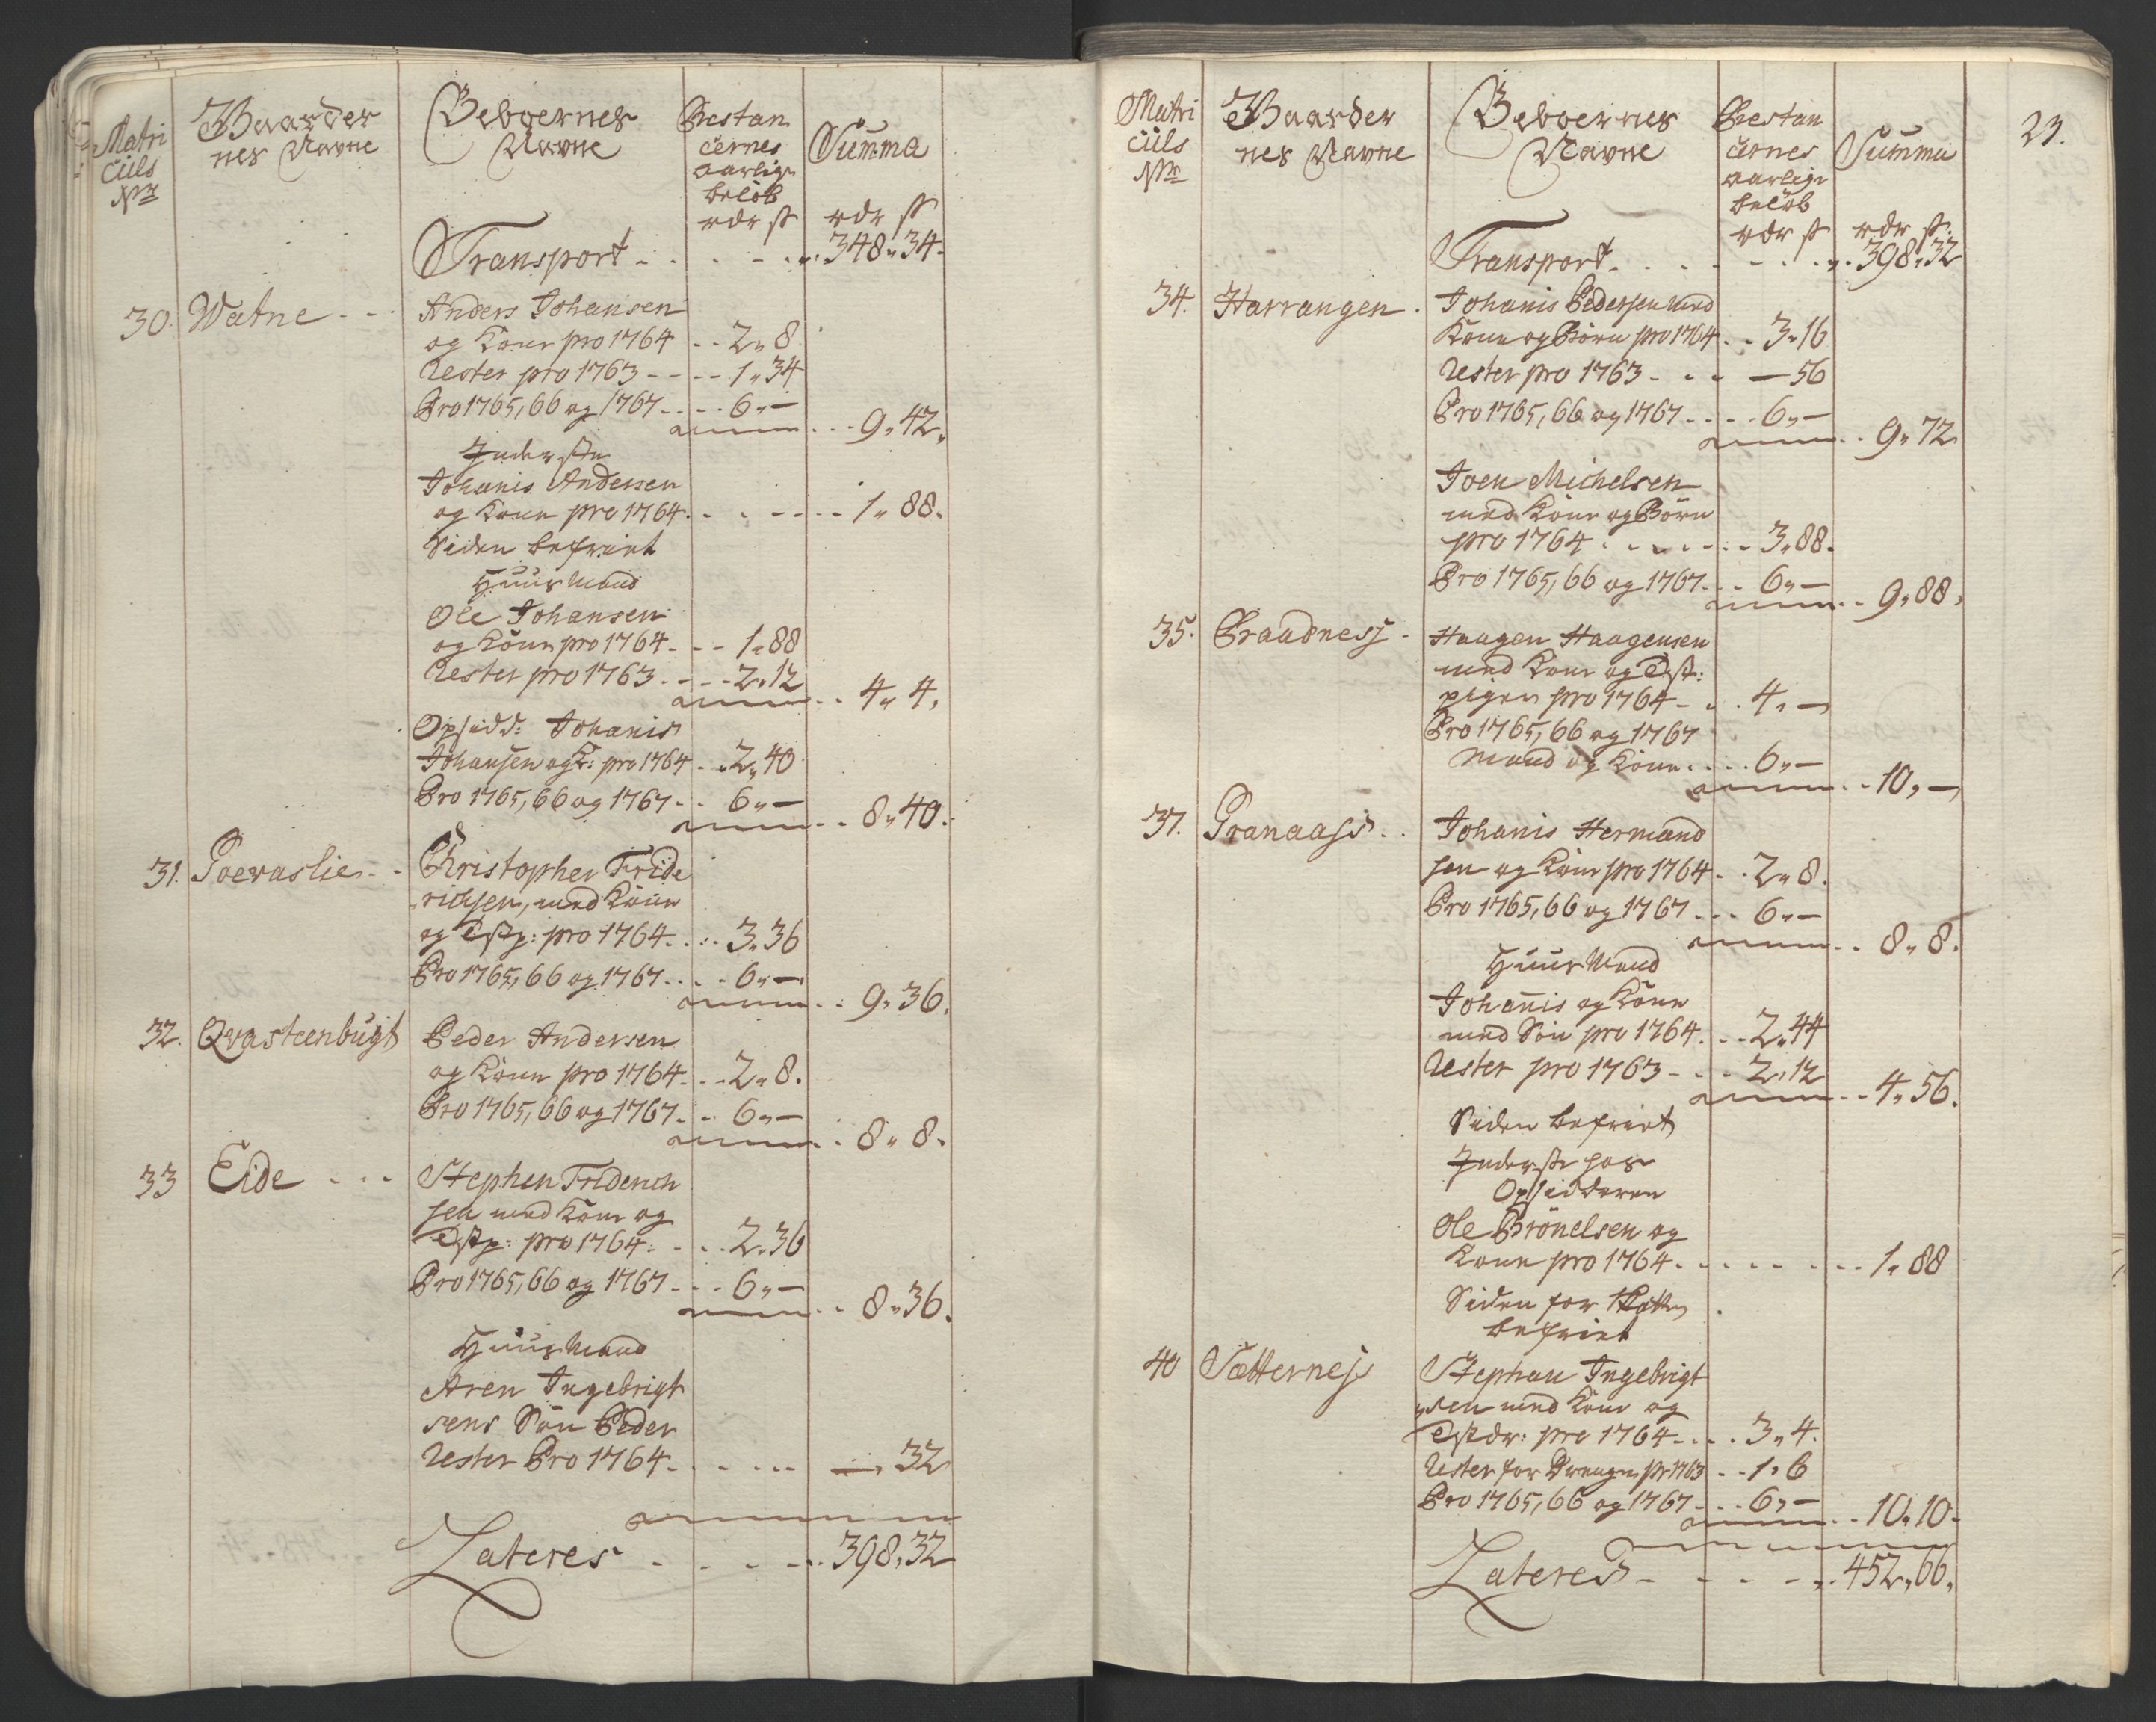 Matri
culs
Nr
Gaarder
nes Navne
Beboernes
Navne
Restan
cernes
aarlige
beløb
rdr ß
Summa
rdr ß
Transport - - - - 348 " 34 -
30. Watne - - Anders Johansen
og Kone pro 1764 - - 2 " 8
Rester pro 1763 - - - - 1 " 34
Pro 1765, 66 og 1767 - - - 6 " —
- - - 9 " 42 "
Inderste
Johanis Andersen
og Kone pro 1764 - - - - - 1 " 88.
Siden befriet
Huusmand
Ole Johansen
og Kone pro 1764 - - - 1 " 88
Rester pro 1763 - - - - 2 " 12
- - 4 " 4.
Opsidd: Johanis
Johansen og K: pro 1764 - - 2 " 40
Pro 1765, 66 og 1767 - - 6 " —
- - 8 " 40.
31. - - Christopher Fride
richsen, med Kone
og Tstp: pro 1764 - - - 3 " 36
Pro 1765, 66 og 1767 - - - 6 " —
- - 9 " 36.
32. Qvasteenbugt Peder Andersen
og Kone pro 1764 - - - 2 " 8.
Pro 1765, 66 og 1767 - - 6 " —
- - 8 " 8.
33 Eide - - - Stephen Friderich
sen med Kone og
Tstp: pro 1764 - - - 2 " 36
Pro 1765, 66 og 1767 - - - 6 " —
- - 8 " 36.
Huusmand
Aren Ingebrigt
sens Søn Peder
Rester Pro 1764 - - - - — " 32
Lateres - - - - 398 " 32
23.
Matri
culs
Nr
Gaarder
nes Navne
Beboernes
Navne
Restan
cernes
aarlige
beløb
rdr ß
Summa
rdr ß.
Transport - - - - 398 " 32
34. Harrangen . Johanis Pedersen med
Kone og Børn pro 1764 - - 3 " 16
Rester pro 1763 - - - — 56
Pro 1765, 66 og 1767 - - - - 6 " —
- - 9 " 72
Joen Michelsen
med Kone og Børn
pro 1764 - - - - - - 3 " 88.
Pro 1765, 66 og 1767 - - 6 " —
- - 9 " 88.
35. Braadnesj - Haagen Haagensen
med Kone og Tst:
pigen pro 1764 - - - 4 " —
Pro 1765, 66 og 1767
Mand og Kone - - - 6 " —
- - 10 " —
37. Granaass - - Johanis Hermand
sen og Kone pro 1764 - - 2 " 8.
Pro 1765, 66 og 1767 - - - 6 " —
- - 8 " 8.
Huusmand
Johannis og Kone
med Søn pro 1764 - - - 2 " 44
Rester pro 1763 - - - 2 " 12
- - 4 " 56.
Siden befriet
Inderste hos
Opsidderen
Ole Brönelsen og
Kone pro 1764 - - - - - - 1 " 88
Siden for Skatten
befriet
40 Sætternes Stephan Ingebrigt
sen med Kone og
Tstdr: pro 1764 - - - 3 " 4.
Rester for Drengen pr 1763 - - 1 " 6
Pro 1765, 66 og 1767 - - - 6 " —
- - 10 " 10 -
Lateres - - - - 452 " 66.